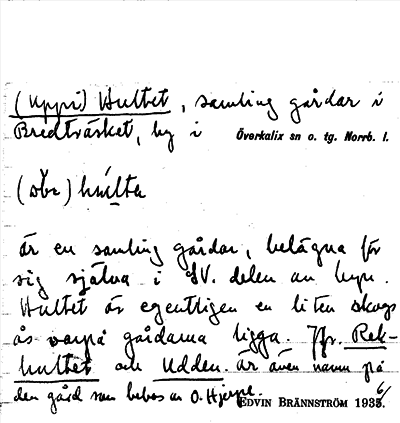 (Uppi) Hultet, samling gårdar i
Bredträsket, by i Överkalix sn o. tg. Norrb. l.
är en samling gårdar, belägna för
sig själva i SV. delen av byn.
Hultet är egentligen en liten skogs
ås varpå gårdarna ligga. Jfr. Rek-
hultet och Udden. Är även namn på
den gård som bebos av O. Hjerpe.
EDVIN BRÄNNSTRÖM 1935. 6/